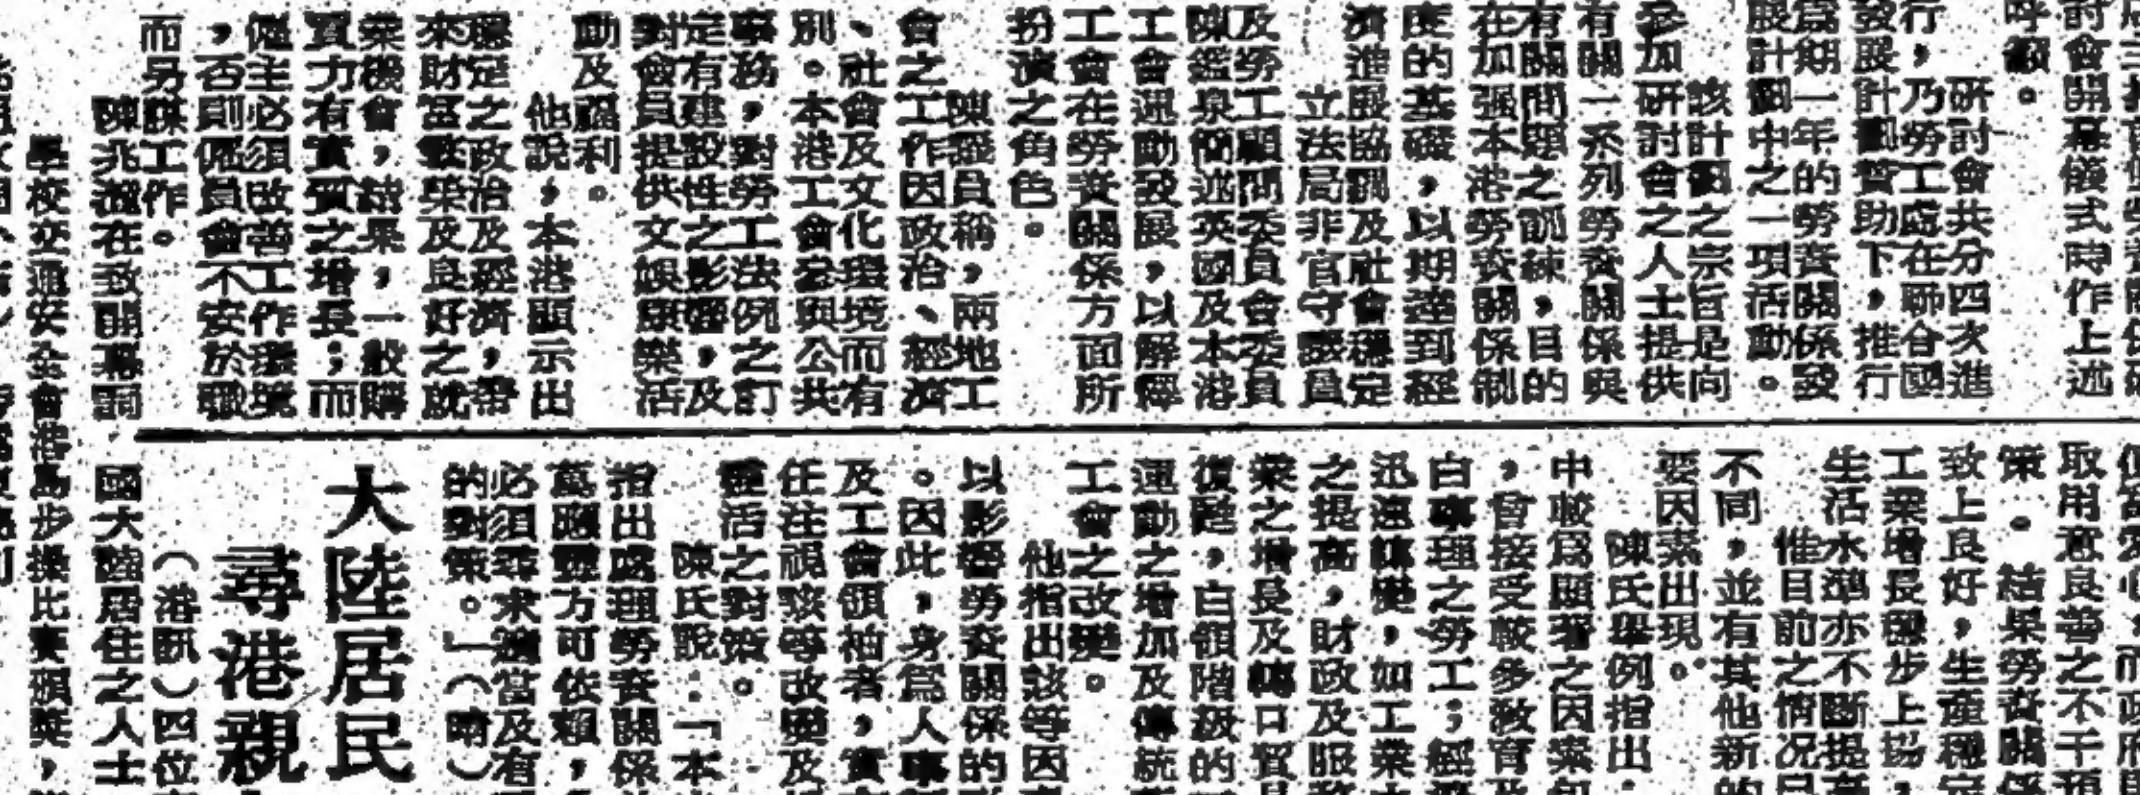 討會開幕儀式時作上述
呼籲。
研討會共分四次進
行,乃勞工處在聯合國
發展計劃贊助下,推行
為期一年的勞資關係發
展計劃中之一項活動。
該計劃之宗旨是向
參加研討會之人士提供
有關一系列勞資關係與
有關問題之訓練,目的
在加强本港勞資關係制
度的基礎,以期達到經
濟進展協調及社會穩定
立法局非官守議員
及勞工顧問委員會委員
陳鑑泉簡述英國及本港
工會運動發展,以解釋
工會在勞資關係方面所
扮演之角色。
陳議員稱,兩地工
會之工作因政治、經濟
、社會及文化環境而有
別。本港工會參與公共
事務,對勞工法例之訂
定有建設性之影響,及
對會員提供文娛康樂活
動及福利。
他說,本港顯示出
穩定之政治及經濟,帶
來財富繁榮及良好之就
業機會,結果,一般購
買力有實質之增長;而
僱主必須改善工作環境
,否則僱員會不安於職
而另謀工作。
陳兆愷在致開幕詞
學校交通安全會港島步操比賽頒獎,
取用意良善之不干預
策。結果勞資關係
致上良好,生產穩定
工業增長穩步上揚,
生活水準亦不斷提高
惟目前之情况已
不同,並有其他新的
要因素出現。
陳氏舉例指出:
中較為顯著之因素包
,曾接受較多教育及
白事理之勞工;經濟
迅速轉變,如工業大
之提高,財政及服務
業之增長及轉口貿易
復甦,白領階級的
運動之增加及傳統
工會之改變。
他指出該等因素
以影響勞資關係的
。因此,身為人事
及工會領袖者,實
任注視該等改變及
靈活之對策。
陳氏說:「本
指出處理勞資關係
萬應靈方可依賴,
必須尋求適當及有
的對策。」(晴)
大陸居民
尋港親
(港訊)四位
國大陸居住之人士